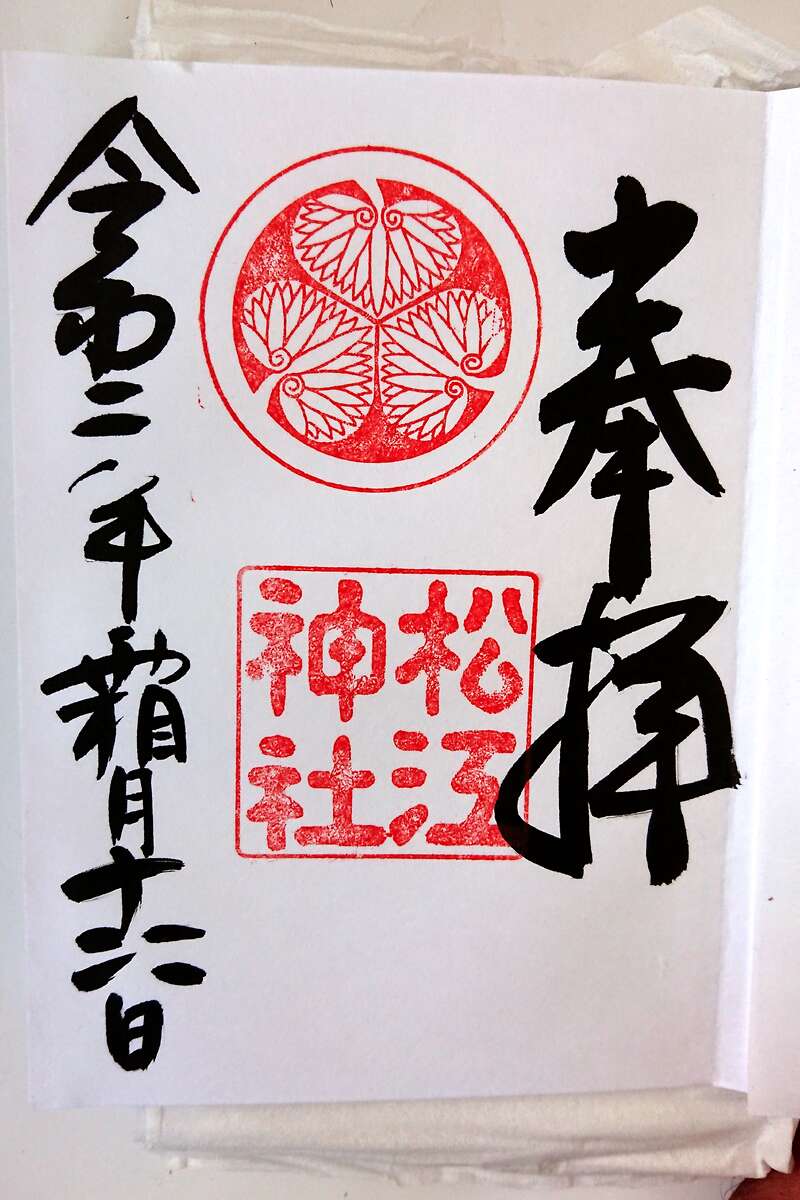 奉拝
松江
神社
令和二年霜月十六日